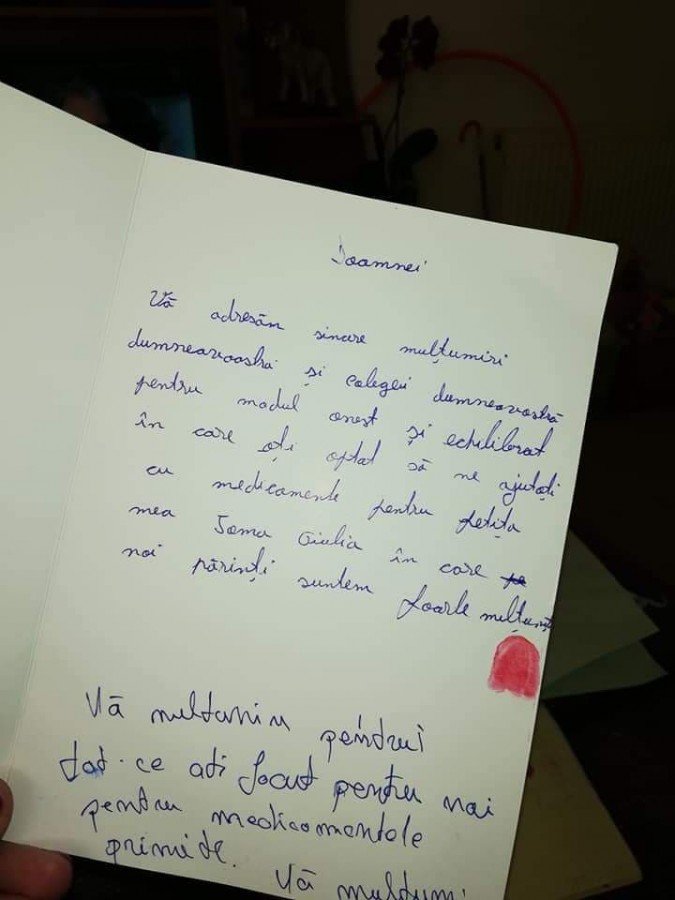 Doamnei
Vă adresăn sincere mulțumiri
dumneavoastră și colegei dumneavoastră
pentru modul onest și echilibrat
în care ați optat să ne ajutați
cu medicamente pentru fetița
mea Toma Giulia în care
noi părinți suntem foarte mulțumiți
Vă multumim pentrui
tot ce ati facut pentru noi
pentru medicamentele
primite. Vă multumi